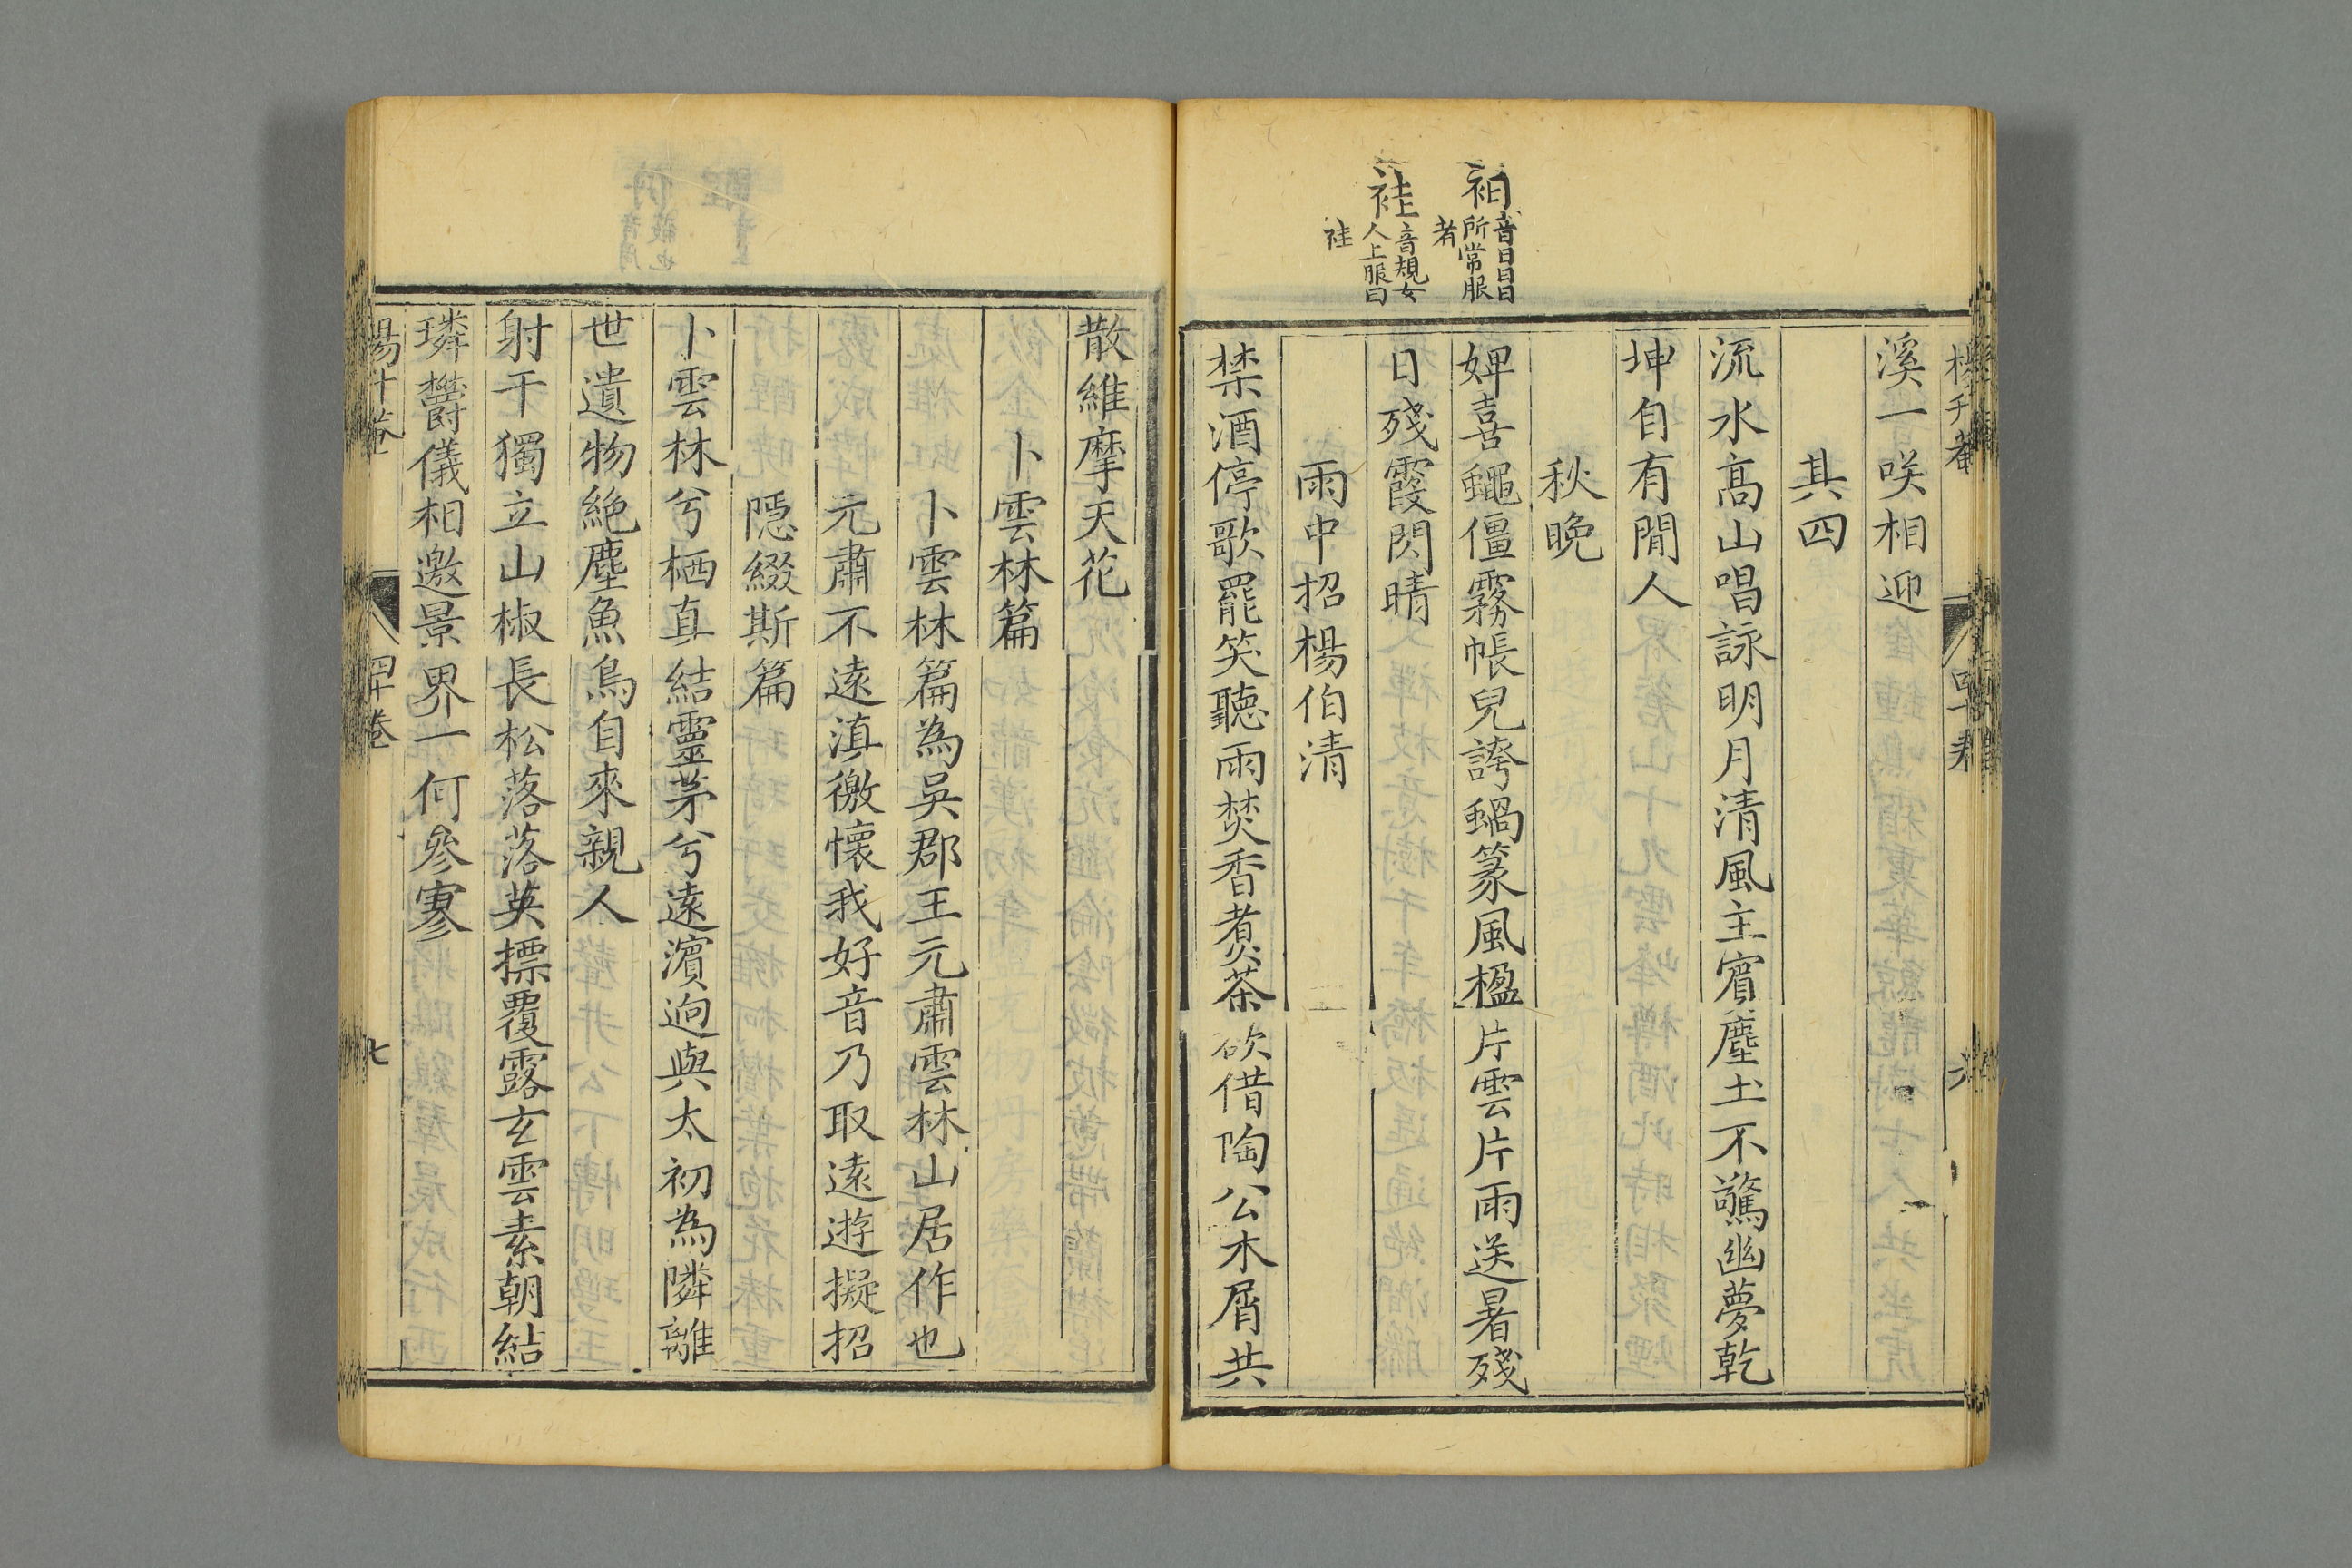 溪一咲相迎
其四
流水高山唱詠明月清風主賓塵土不驚幽夢乾
坤自有閒人
秋晚
婢喜蠅僵霧帳兒誇蝸篆風楹片雲片雨送暑殘
日殘霞閃晴
雨中招楊伯清
禁酒停歌罷笑聽雨焚香煮茶欲借陶公木屑共
衵音日日日
所常服
者
袿音規女
人上服曰
袿
散維摩天花
卜雲林篇
卜雲林篇為吳郡王元肅雲林山居作也
元肅不遠滇徼懷我好音乃取遠遊擬招
隱綴斯篇
卜雲林兮栖真結靈茅兮遠濵逈與太初為隣離
世遺物絶塵魚鳥自來親人
射干獨立山椒長松落落英摽覆露玄雲素朝結
璘欝儀相邀景界一何參寥
四十卷
七